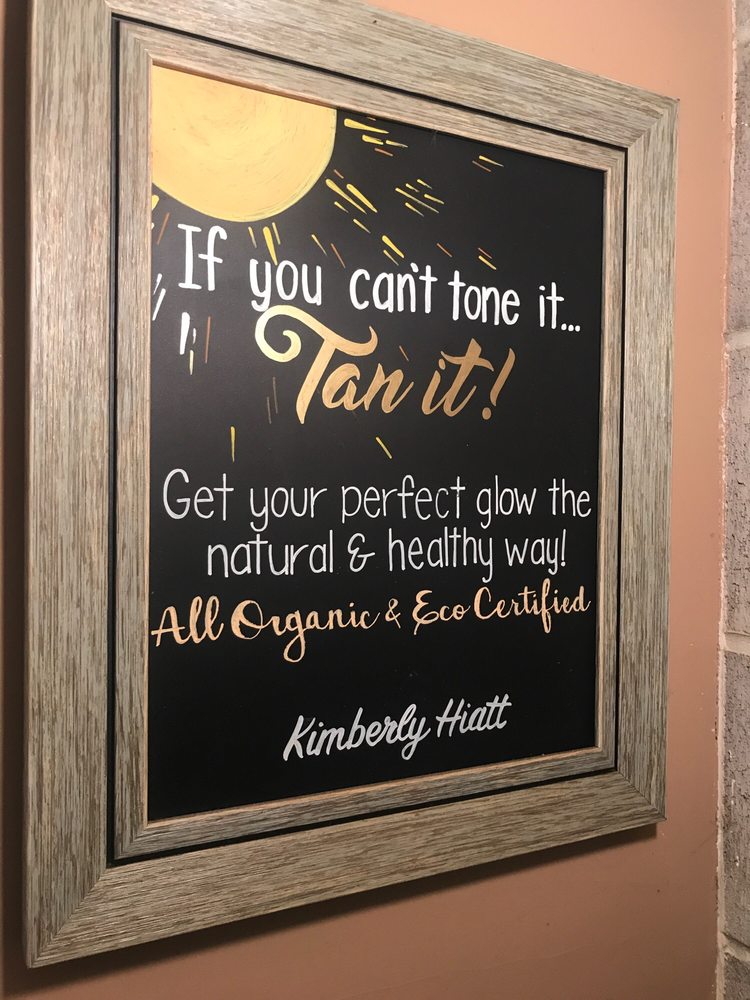 If you can't tone it...
Tan it!
Get your perfect glow the
natural & healthy way!
All Organic & Eco Certified
Kimberly Hiatt